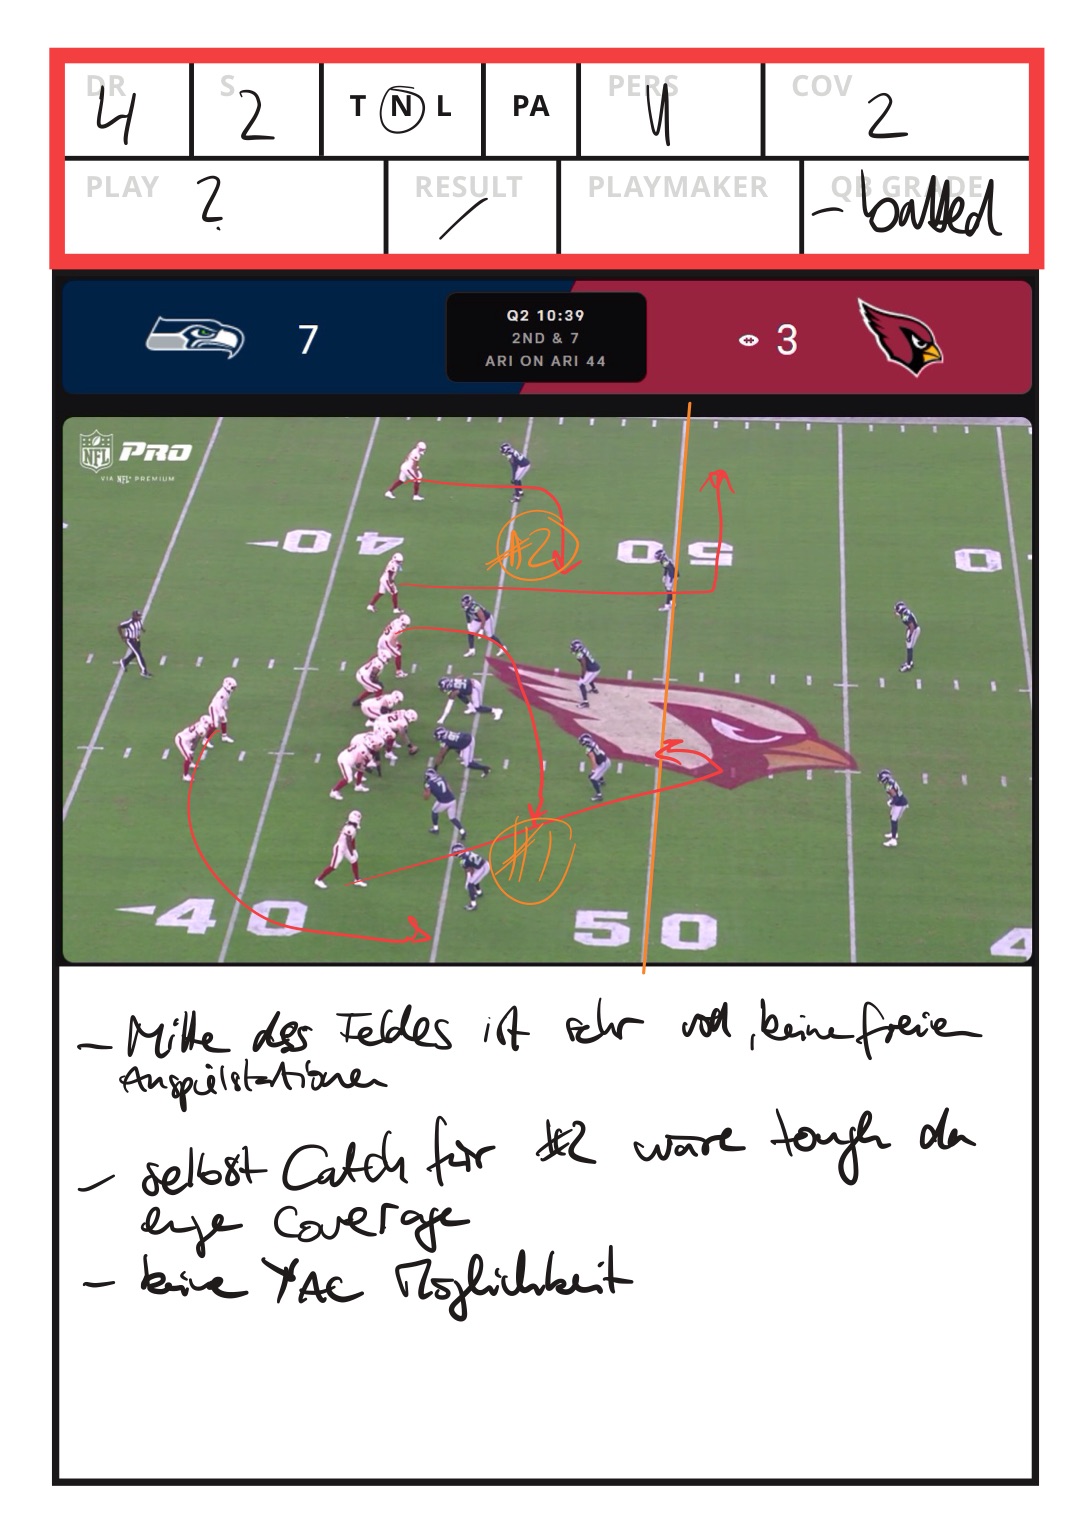 DR 4 S 2 T N L PA PERS 11 COV 2
PLAY ? RESULT / PLAYMAKER QB GRADE - batted
7 Q2 10:39 3
2ND & 7
ARI ON ARI 44
NFL PRO
VIA NFL+ PREMIUM
40 50 40
#2
#1
40 50 4
- Mitte des Feldes ist sehr voll, keine freien
Anspielstationen
- selbst Catch für #2 wäre tough da
enge Coverage
- keine YAC Möglichkeit